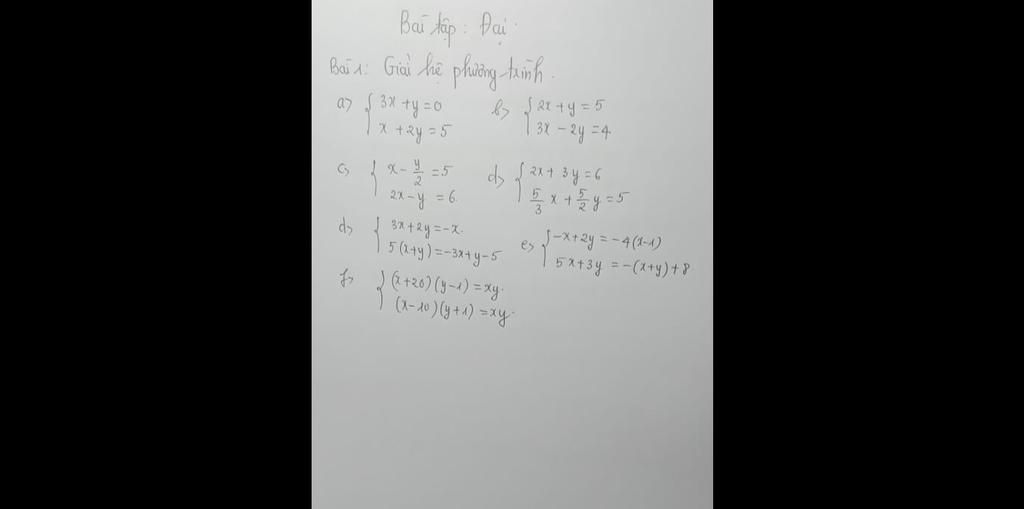 Bài tập: Đại.
Bài 1: Giải hệ phương trình.
a> { 3x + y = 0
x + 2y = 5
b> { 2x + y = 5
3x - 2y = 4.
c> { x - y/2 = 5
2x - y = 6.
d> { 2x + 3y = 6
5/3 x + 5/2 y = 5
d> { 3x + 2y = -x.
5(x+y) = -3x + y - 5
e> { -x + 2y = -4(x-1)
5x + 3y = -(x+y) + 8
f> { (x+20)(y-1) = xy.
(x-10)(y+1) = xy.